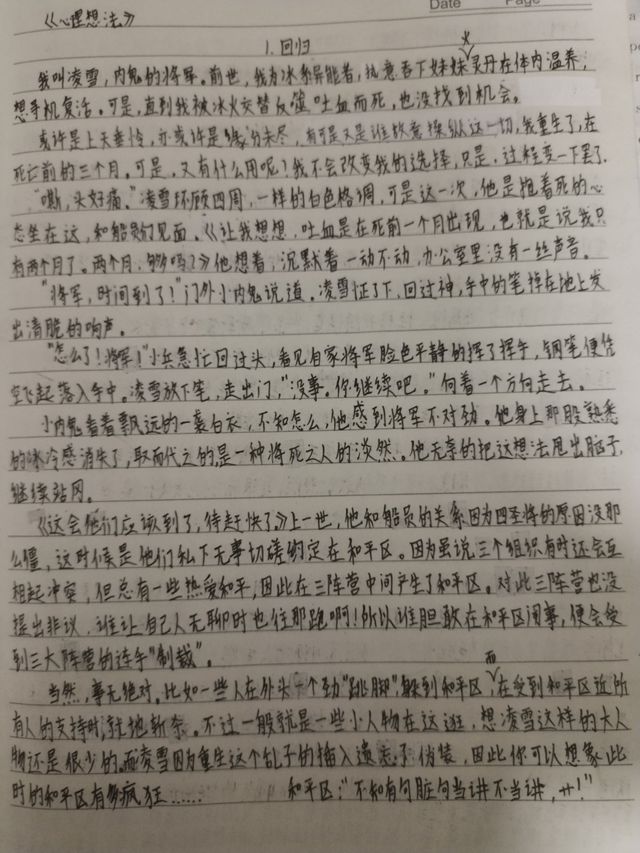 Date Page
《心理想法》
1.回归
我叫凌雪,内鬼的将军。前世,我为冰系异能者,执意吞下妹妹火灵丹在体内温养,
想寻机复活。可是,直到我被冰火交替反噬吐血而死,也没找到机会。
或许是上天垂怜,亦或许是缘分未尽,有可是又是谁故意操纵这一切,我重生了,在
死亡前的三个月。可是,又有什么用呢?我不会改变我的选择,只是,过程变一下罢了.
"嘶,头好痛。"凌雪环顾四周,一样的白色格调,可是这一次,他是抱着死的心
态坐在这,和船员们见面。《让我想想,吐血是在死前一个月出现,也就是说我只
有两个月了。两个月,够吗?》他想着,沉默着一动不动,办公室里没有一丝声音。
"将军,时间到了!"门外小内鬼说道。凌雪怔了下,回过神,手中的笔掉在地上发
出清脆的响声。
"怎么了!将军!"小兵急忙回过头,看见自家将军脸色平静的挥了挥手,钢笔便凭
空飞起落入手中。凌雪放下笔,走出门,"没事。你继续吧。"向着一个方向走去。
小内鬼看着飘远的一袭白衣,不知怎么,他感到将军不对劲。他身上那股熟悉
的冰冷感消失了,取而代之的是一种将死之人的淡然。他无奈的把这想法甩出脑子,
继续站岗。
《这会他们应该到了,得赶快了》上一世,他和船员的关系因为四圣将的原因没那
么僵,这时候是他们私下无事切磋约定在和平区。因为虽说三个组织有时还会互
相起冲突,但总有一些热爱和平,因此在三阵营中间产生了和平区。对此三阵营也没
提出非议,谁让自己人无聊时也往那跑啊!所以谁胆敢在和平区闹事,便会受
到三大阵营的连手"制裁"。
当然,事无绝对。比如一些人在外头一个劲"跳脚",躲到和平区,而在受到和平区近所
有人的支持时,就地斩杀。不过一般就是一些小人物在这逛,想凌雪这样的大人
物还是很少的。而凌雪因为重生这个乱子的插入遗忘了伪装,因此你可以想象此
时的和平区有多疯狂…… 和平区:"不知有句脏句当讲不当讲,艹!"